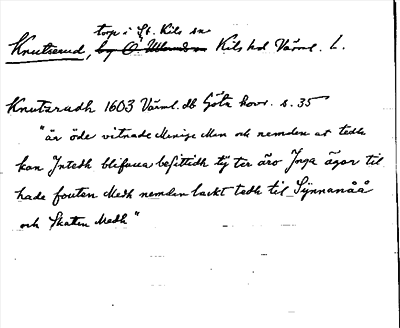 torp i St. Kils sn
Knutserud, by Ö. Ullerud sn Kils hd Värml. L.
Knutzrudh 1603 Värml. db Göta hovr. s. 35
"är öde vitnade Menige Man och nemden at tedh
kan Intedh blifua besittidh ty ter äro Inga ägor til
hade fouten Medh nemden lackt tedh til Synnanåå
och Skatten Medh"